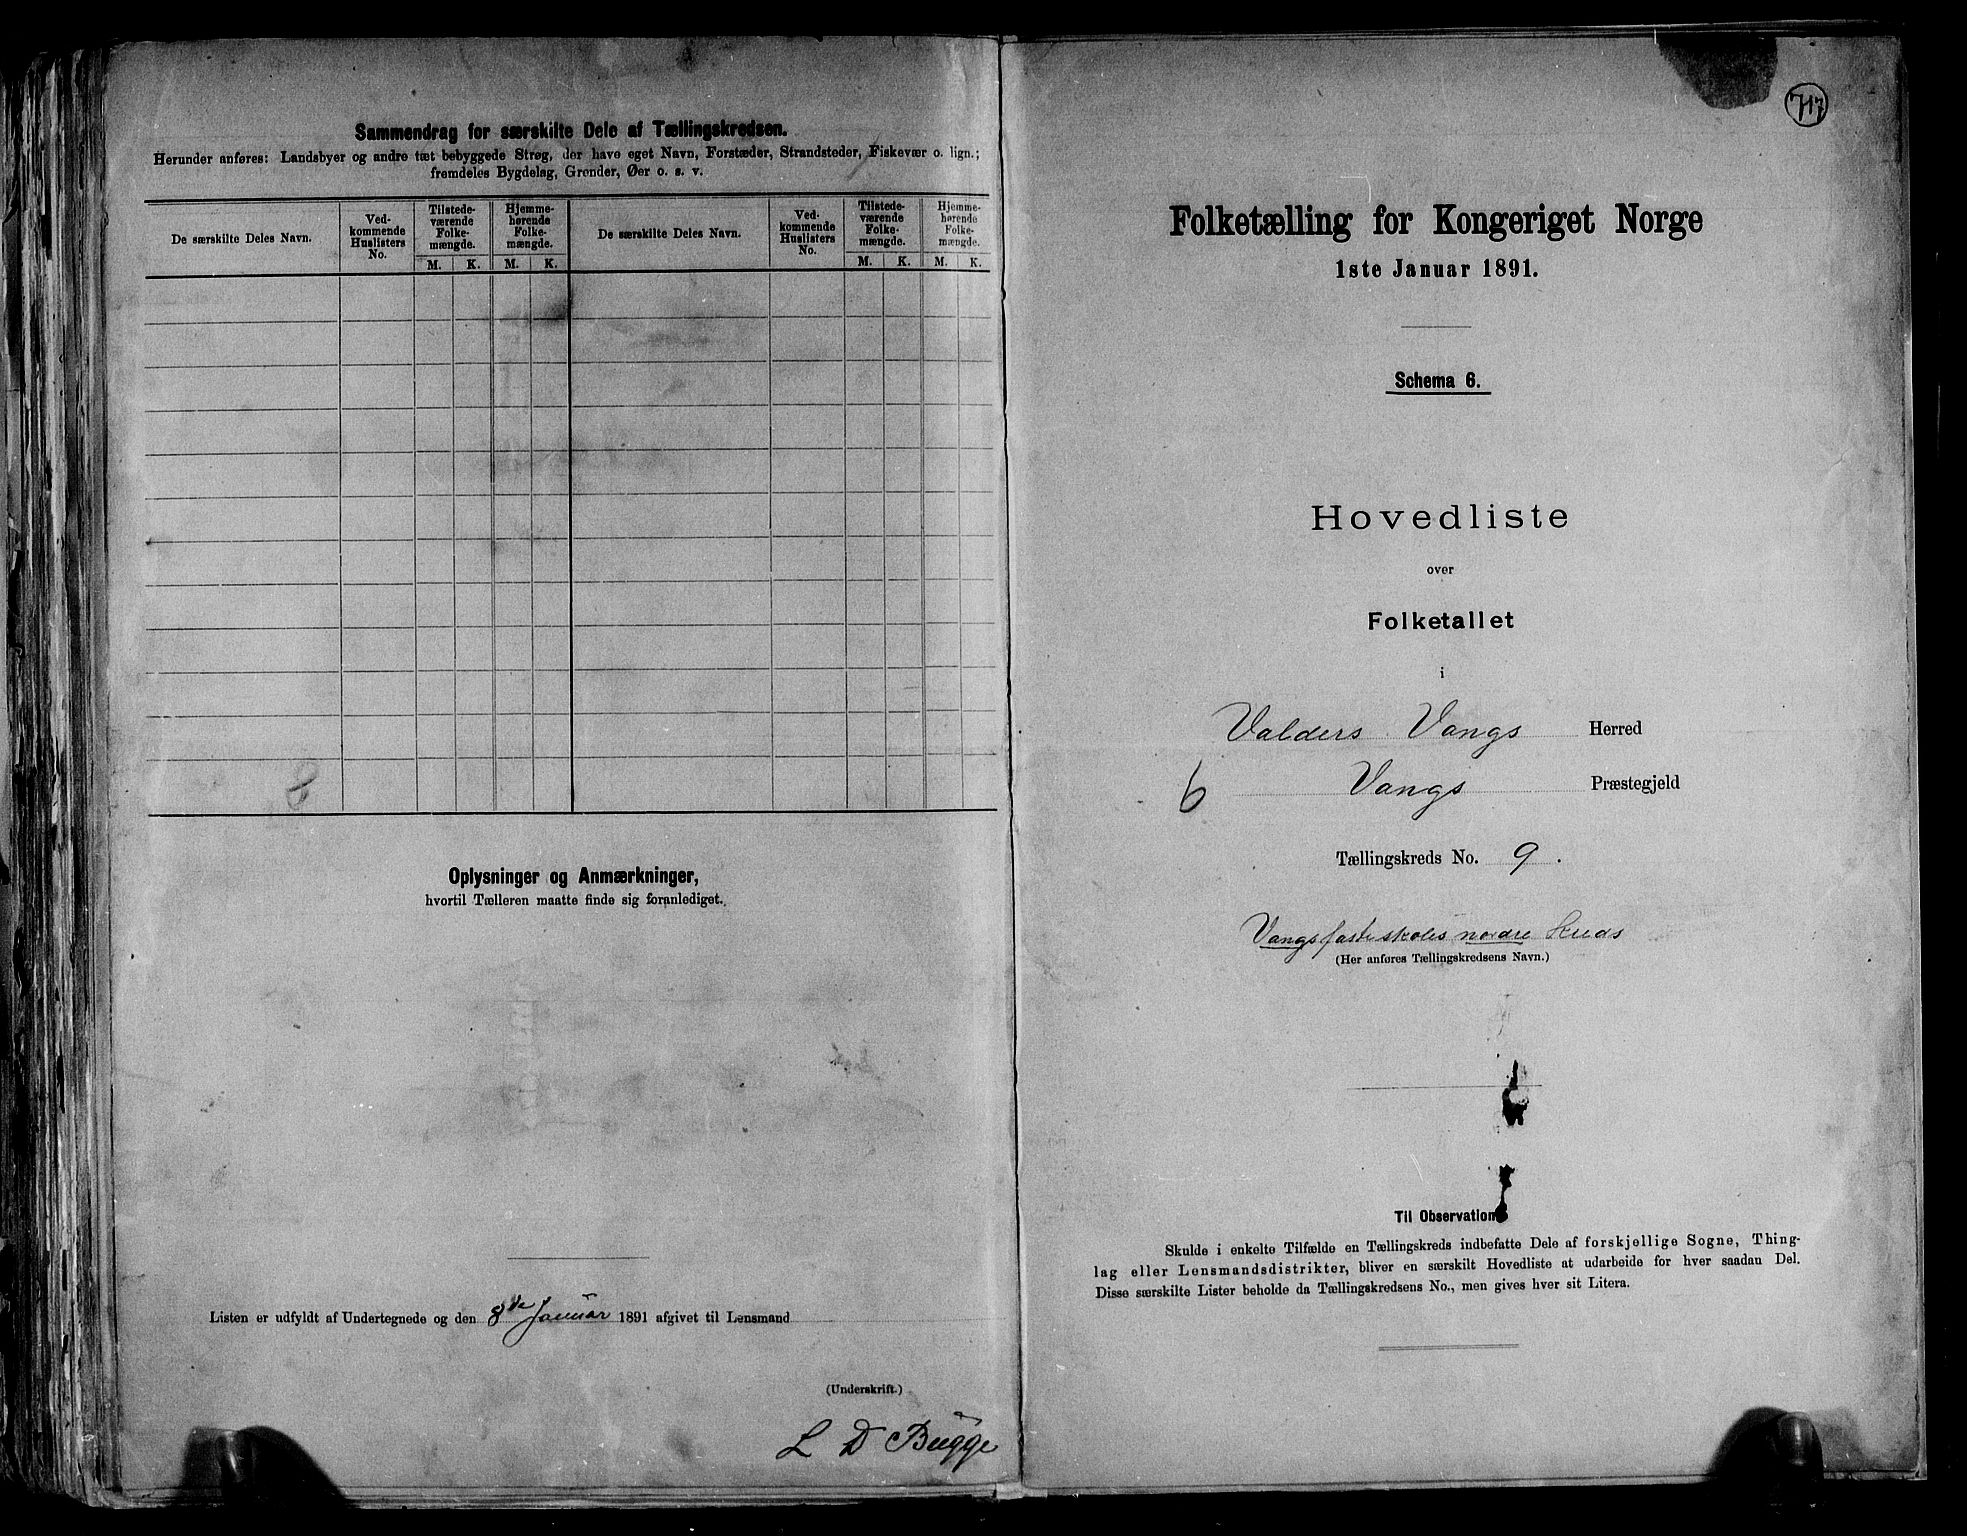 Sammendrag for særskilte Dele af Tællingskredsen.
Herunder anføres: Landsbyer og andre tæt bebyggede Strøg, der have eget Navn, Forstæder, Strandsteder, Fiskevær o. lign.;
fremdeles Bygdelag, Grender, Øer o. s. v.
De særskilte Deles Navn.
Ved-
kommende
Huslisters
No.
Tilstede-
værende
Folke-
mængde.
Hjemme-
hørende
Folke-
mængde.
M. K. M. K.
De særskilte Deles Navn.
Ved-
kommende
Huslisters
No.
Tilstede-
værende
Folke-
mængde.
Hjemme-
hørende
Folke-
mængde.
M. K. M. K.
8
Oplysninger og Anmærkninger,
hvortil Tælleren maatte finde sig foranlediget.
Listen er udfyldt af Undertegnede og den 8de Januar 1891 afgivet til Lensmand
(Underskrift.)
L D Bugge
717
Folketælling for Kongeriget Norge
1ste Januar 1891.
Schema 6.
Hovedliste
over
Folketallet
i
Valders Vangs Herred
6 Vangs Præstegjeld
Tællingskreds No. 9.
Vangs fasteskoles nordre Kreds
(Her anføres Tællingskredsens Navn.)
Til Observation
Skulde i enkelte Tilfælde en Tællingskreds indbefatte Dele af forskjellige Sogne, Thing-
lag eller Lensmandsdistrikter, bliver en særskilt Hovedliste at udarbeide for hver saadan Del.
Disse særskilte Lister beholde da Tællingskredsens No., men gives hver sit Litera.